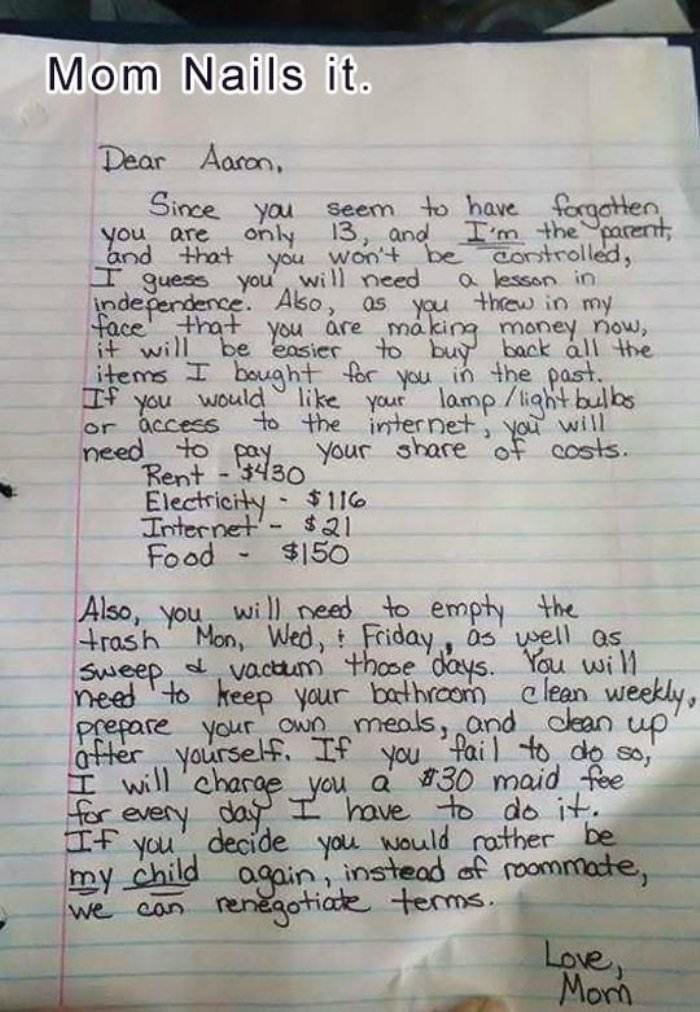 Mom Nails it.
Dear Aaron,
Since you seem to have forgotten
you are only 13, and I'm the parent,
and that you won't be controlled,
I guess you will need a lesson in
independence. Also, as you threw in my
face that you are making money now,
it will be easier to buy back all the
items I bought for you in the past.
If you would like your lamp/lightbulbs
or access to the internet, you will
need to pay your share of costs.
Rent - $430
Electricity - $116
Internet - $21
Food - $150
Also, you will need to empty the
trash Mon, Wed, & Friday, as well as
sweep & vacuum those days. You will
need to keep your bathroom clean weekly,
prepare your own meals, and clean up
after yourself. If you fail to do so,
I will charge you a $30 maid fee
for every day I have to do it.
If you decide you would rather be
my child again, instead of roommate,
we can renegotiate terms.
Love,
Mom